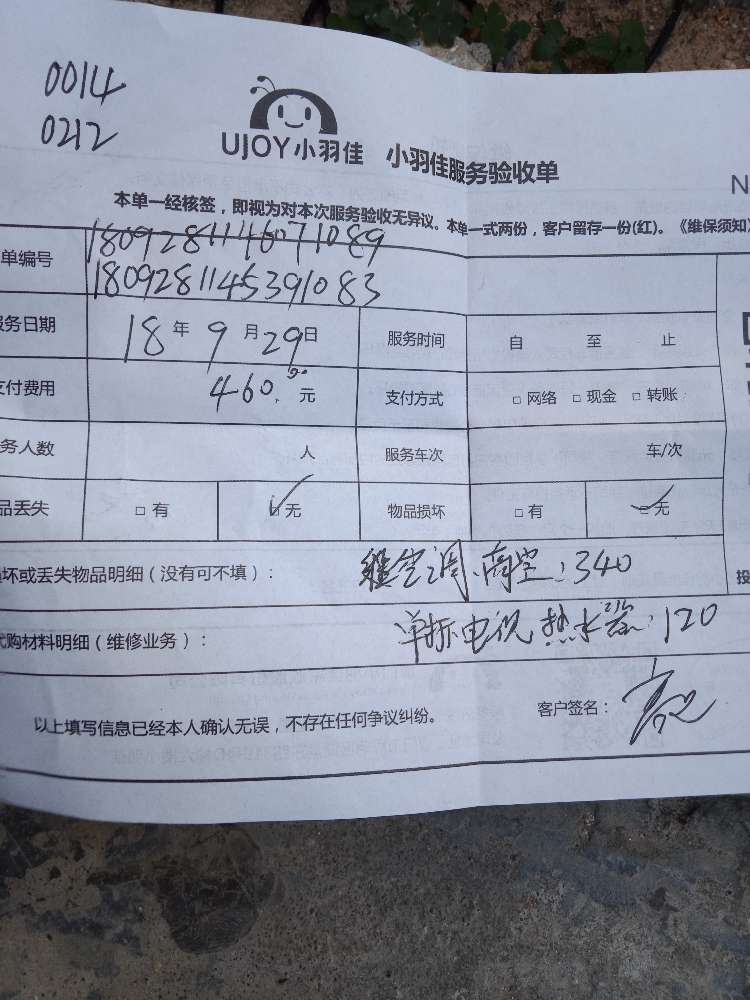 0014
0212
UJOY小羽佳 小羽佳服务验收单
N
本单一经核签，即视为对本次服务验收无异议。本单一式两份，客户留存一份(红)。《维保须知》
单编号 1809281146071089
1809281145391083
服务日期 18年9月29日 服务时间 自 至 止
支付费用 460.00元 支付方式 □网络 □现金 □转账
务人数 人 服务车次 车/次
品丢失 □有 □无 物品损坏 □有 □无
损坏或丢失物品明细（没有可不填）： 空调 高空:340
代购材料明细（维修业务）： 单拆电视 热水器:120
以上填写信息已经本人确认无误，不存在任何争议纠纷。 客户签名：
投